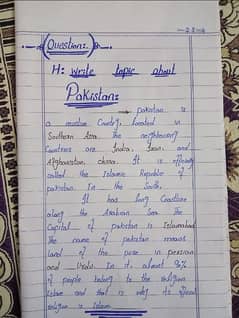 Question:
H: write topic about
Pakistan:
pakistan is
a muslim Country, located in
Southern Asia the neighbouring
Countries are India, Iran, and
Afghanistan, china. It is officially
called the Islamic Republic of
pakistan. In the South,
It has long Coastline
along the Arabian Sea The
Capital of pakistan is Islamabad
The name of pakistan means
land of the pure in persian
and Urdu. In it, about
of people belong to the religion
Islam and that is why its official
religion is Islam